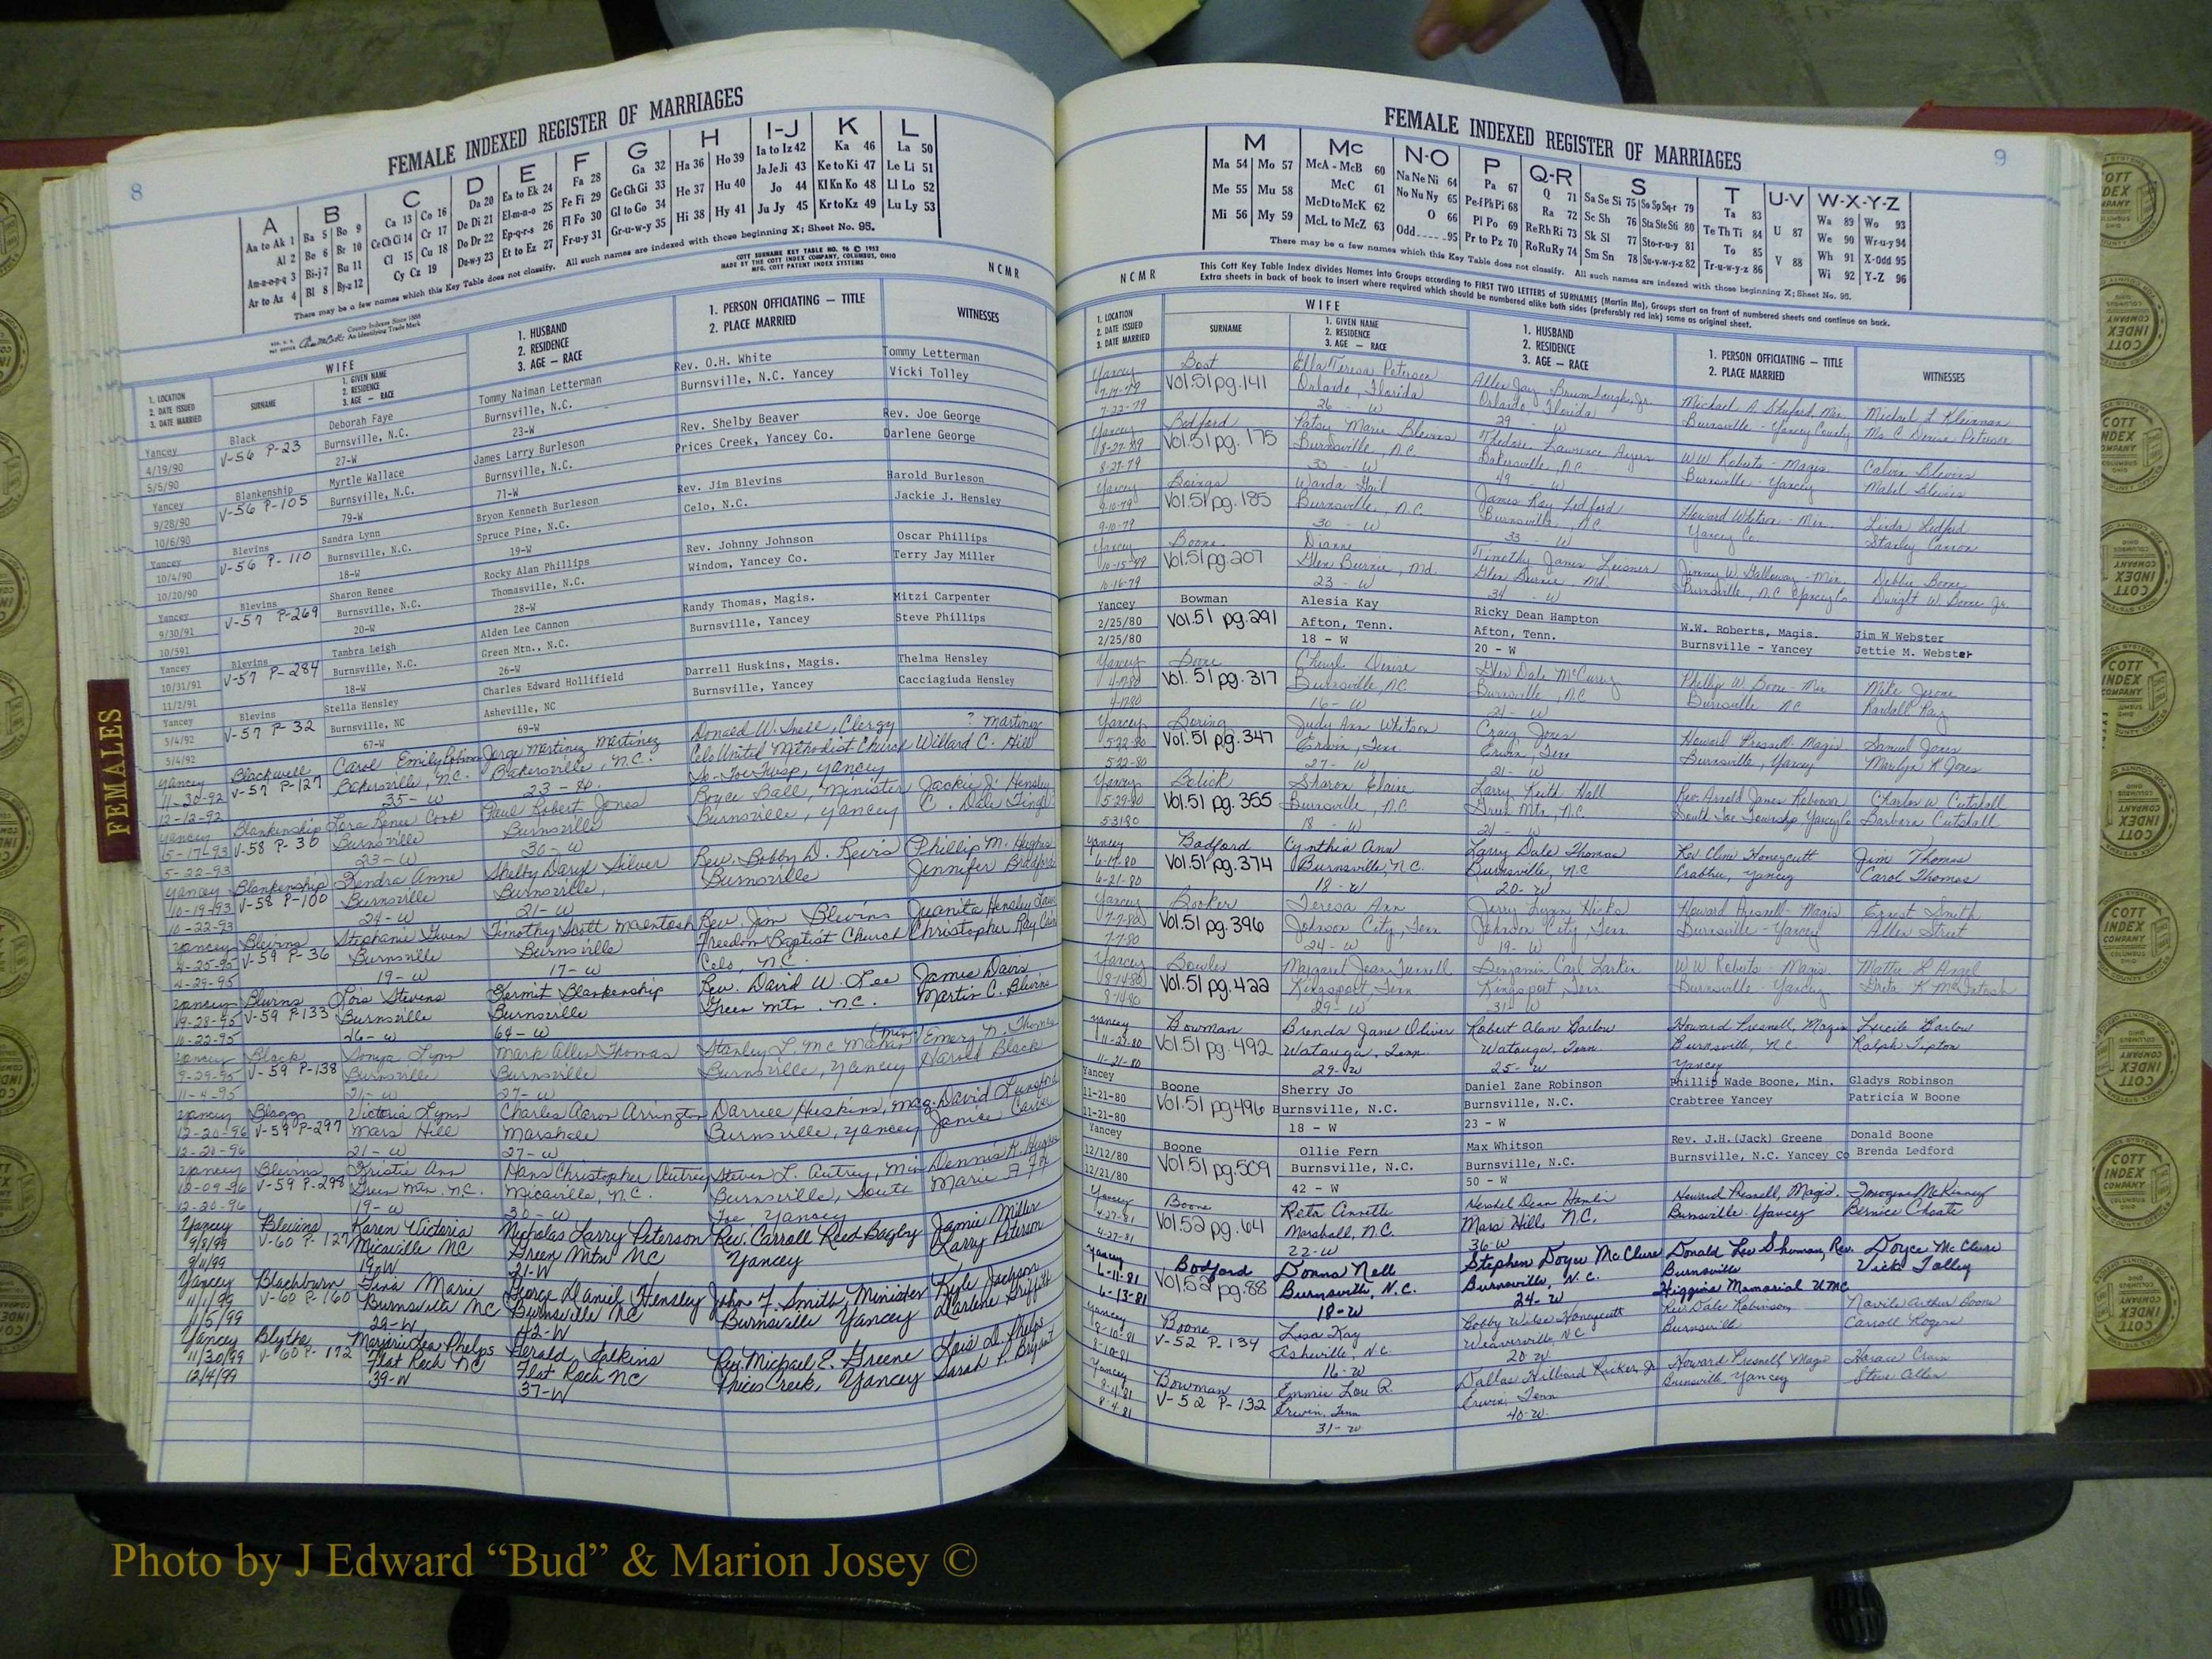 8
FEMALE INDEXED REGISTER OF MARRIAGES
A B C D E F G H I-J K L
Aa to Ak 1 Ba 5 Bo 9 Ca 13 Co 16 Da 20 Ea to Ek 24 Fa 28 Ga 32 Ha 36 Ho 39 Ia to Iz 42 Ka 46 La 50
Al 2 Be 6 Br 10 Ce Ch Ci 14 Cr 17 De Di 21 El-m-n-o 25 Fe Fi 29 Ge Gh Gi 33 He 37 Hu 40 Ja Je Ji 43 Ke to Ki 47 Le Li 51
Am-n-o-p-q 3 Bi-j 7 Bu 11 Cl 15 Cu 18 Do Dr 22 Ep-q-r-s 26 Fl Fo 30 Gl to Go 34 Hi 38 Hy 41 Jo 44 Kl Kn Ko 48 Ll Lo 52
Ar to Az 4 Bl 8 By-z 12 Cy Cz 19 Du-w-y 23 Et to Ez 27 Fr-u-y 31 Gr-u-w-y 35 Ju Jy 45 Kr to Kz 49 Lu Ly 53
There may be a few names which this Key Table does not classify. All such names are indexed with those beginning X; Sheet No. 95.
COTT SURNAME KEY TABLE NO. 96 © 1952
MADE BY THE COTT INDEX COMPANY, COLUMBUS, OHIO
MFG. COTT PATENT INDEX SYSTEMS
NCMR
County Indexes Since 1888
An Identifying Trade Mark
1. LOCATION
2. DATE ISSUED
3. DATE MARRIED
WIFE
SURNAME
1. GIVEN NAME
2. RESIDENCE
3. AGE — RACE
1. HUSBAND
2. RESIDENCE
3. AGE — RACE
1. PERSON OFFICIATING — TITLE
2. PLACE MARRIED
WITNESSES
Yancey Black Deborah Faye Tommy Naiman Letterman Rev. O.H. White Tommy Letterman
4/19/90 V-56 P-23 Burnsville, N.C. Burnsville, N.C. Burnsville, N.C. Yancey Vicki Tolley
5/5/90 27-W 23-W
Yancey Blankenship Myrtle Wallace James Larry Burleson Rev. Shelby Beaver Rev. Joe George
9/28/90 V-56 P-105 Burnsville, N.C. Burnsville, N.C. Prices Creek, Yancey Co. Darlene George
10/6/90 79-W 71-W
Yancey Blevins Sandra Lynn Bryon Kenneth Burleson Rev. Jim Blevins Harold Burleson
10/4/90 V-56 P-110 Burnsville, N.C. Spruce Pine, N.C. Celo, N.C. Jackie J. Hensley
10/20/90 18-W 19-W
Yancey Blevins Sharon Renee Rocky Alan Phillips Rev. Johnny Johnson Oscar Phillips
9/30/91 V-57 P-269 Burnsville, N.C. Thomasville, N.C. Windom, Yancey Co. Terry Jay Miller
10/591 20-W 28-W
Yancey Blevins Tambra Leigh Alden Lee Cannon Randy Thomas, Magis. Mitzi Carpenter
10/31/91 V-57 P-284 Burnsville, N.C. Green Mtn., N.C. Burnsville, Yancey Steve Phillips
11/2/91 18-W 26-W
Yancey Blevins Stella Hensley Charles Edward Hollifield Darrell Huskins, Magis. Thelma Hensley
5/4/92 V-57 P-32 Burnsville, NC Asheville, NC Burnsville, Yancey Cacciagiuda Hensley
5/4/92 67-W 69-W
Yancey Blackwell Carol Jorge Martinez Martinez Donald W. Snell, Clergy ? Martinez
11-30-92 V-57 P-127 Bakersville, N.C. Bakersville, N.C. Celo United Methodist Church Willard C. Hill
12-12-92 35-W 23- Yancey
Yancey Blankenship Lora Renee Cook Paul Robert Jones Boyce Ball, Minister Jackie J. Hensley
5-17-93 V-58 P-30 Burnsville Burnsville Burnsville, Yancey C. Dale
5-22-93 23-W 30-W
Yancey Blankenship Kendra Anne Shelby Daryl Silver Rev. Bobby D. Revis Phillip M. Hughes
10-19-93 V-58 P-100 Burnsville Burnsville, Burnsville Jennifer Bradford
10-22-93 24-W 21-W
Yancey Blevins Stephanie Gwen Timothy Scott McIntosh Rev. Jim Blevins Juanita Hensley
4-25-95 V-59 P-36 Burnsville Burnsville Freedom Baptist Church Christopher Ray
4-29-95 19-W 17-W Celo, N.C.
Yancey Blevins Lois Stevens Kermit Blankenship Rev. David W. Lee Jamie Davis
19-28-95 V-59 P-133 Burnsville Burnsville Green Mtn. N.C. Martin C. Blevins
10-22-95 64-W
Yancey Black Sonya Lynn Mark Allen Thomas Stanley L. McMahan Emery D. Thomas
9-29-95 V-59 P-138 Burnsville Burnsville Burnsville, Yancey Harold Black
11-4-95 21-W 27-W
Yancey Blagg Victoria Lynn Charles Aaron Arrington Darrell Huskins, Mag. David Lunsford
12-20-96 V-59 P-297 Mars Hill Marshall Burnsville, Yancey Janice
12-20-96 21-W 27-W
Yancey Blevins Kristie Ann Hans Christopher Autrey Steven L. Autrey, Min Dennis K. Hughes
12-09-96 V-59 P-298 Green Mtn. N.C. Micaville, N.C. Burnsville, South Marie A. Fox
12-20-96 19-W 30-W Toe, Yancey
Yancey Blevins Karen Victoria Nicholas Larry Peterson Rev. Carroll Reed Bagley Jamie Miller
9/8/99 V-60 P-127 Micaville NC Green Mtn NC Yancey Larry Peterson
9/11/99 19-W 21-W
Yancey Blackburn Tina Marie George Daniel Hensley John F. Smith, Minister Kyle Jackson
11/1/99 V-60 P-160 Burnsville NC Burnsville NC Burnsville Yancey Darlene Griffith
11/5/99 29-W 42-W
Yancey Blythe Marjorie Lea Phelps Gerald Rev. Michael E. Greene Lois D. Phelps
11/30/99 V-60 P-172 Flat Rock NC Flat Rock NC Prices Creek, Yancey Sarah P. Bryant
12/4/99 39-W 37-W
FEMALES
9
FEMALE INDEXED REGISTER OF MARRIAGES
M Mc N-O P Q-R S T U-V W-X-Y-Z
Ma 54 Mo 57 McA - McB 60 Na Ne Ni 64 Pa 67 Q 71 Sa Se Si 75 So Sp Sq-r 79 Ta 83 U 87 Wa 89 Wo 93
Me 55 Mu 58 McC 61 No Nu Ny 65 Pe-f Ph Pi 68 Ra 72 Sc Sh 76 Sta Ste Sti 80 Te Th Ti 84 V 88 We 90 Wr-u-y 94
Mi 56 My 59 McD to McK 62 O 66 Pl Po 69 Re Rh Ri 73 Sk Sl 77 Sto-r-u-y 81 To 85 Wh 91 X-Odd 95
McL to McZ 63 Odd 95 Pr to Pz 70 Ro Ru Ry 74 Sm Sn 78 Su-v-w-y-z 82 Tr-u-w-y-z 86 Wi 92 Y-Z 96
There may be a few names which this Key Table does not classify. All such names are indexed with those beginning X; Sheet No. 95.
NCMR
This Cott Key Table Index divides Names into Groups according to FIRST TWO LETTERS of SURNAMES (Martin Ma), Groups start on front of numbered sheets and continue on back.
Extra sheets in back of book to insert where required which should be numbered alike both sides (preferably red ink) same as original sheet.
1. LOCATION
2. DATE ISSUED
3. DATE MARRIED
WIFE
SURNAME
1. GIVEN NAME
2. RESIDENCE
3. AGE — RACE
1. HUSBAND
2. RESIDENCE
3. AGE — RACE
1. PERSON OFFICIATING — TITLE
2. PLACE MARRIED
WITNESSES
Yancey Bost Ella Teresa Peterson Allen Jay Brumbaugh, Jr. Michael A. Shuford, Min. Michael L. Kleinman
7-17-79 Vol.51 pg.141 Orlando, Florida Orlando, Florida Burnsville - Yancey County Ms. C. Denise Peterson
7-22-79 26 - W 29 - W
Yancey Bedford Patsy Marie Blevins Thedore Lawrence Ayers W.W. Roberts - Magis. Calvin Blevins
8-27-79 Vol.51 pg. 175 Burnsville, N.C. Bakersville, N.C. Burnsville - Yancey Mabel Blevins
8-27-79 33 - W 49 - W
Yancey Wanda Gail James Roy Ledford Howard Whitson - Min. Linda Ledford
9-10-79 Vol.51 pg.185 Burnsville, N.C. Burnsville, N.C. Yancey Co. Stanley Cannon
9-10-79 30 - W 33 - W
Yancey Boone Dianne Timothy James Leisner Jimmy W. Galloway - Min. Debbie Boone
10-15-79 Vol.51 pg.207 Glen Burnie, Md. Glen Burnie, Md. Burnsville, N.C. Yancey Co. Dwight W. Boone Jr.
10-16-79 23 - W 34 - W
Yancey Bowman Alesia Kay Ricky Dean Hampton W.W. Roberts, Magis. Jim W Webster
2/25/80 Vol.51 pg.291 Afton, Tenn. Afton, Tenn. Burnsville - Yancey Jettie M. Webster
2/25/80 18 - W 20 - W
Yancey Boone Cheryl Denise Glen Dale McCurry Phillip W. Boone - Min Mike Jerome
4-17-80 Vol. 51 pg. 317 Burnsville, N.C. Burnsville, N.C. Burnsville N.C. Randall Ray
4-17-80 16 - W 21 - W
Yancey Boring Judy Ann Whitson Craig Jones Howard Presnell - Magis Samuel Jones
5-22-80 Vol. 51 pg. 347 Erwin, Tenn Erwin, Tenn Burnsville, Yancey Marilyn K. Jones
5-22-80 27 - W 21 - W
Yancey Bolick Sharon Elaine Larry Keith Hall Rev. Arnold James Roberson Charles W. Cutshall
5-29-80 Vol.51 pg. 355 Burnsville, N.C. Green Mtn, N.C. South Toe Township, Yancey Co Barbara Cutshall
5-31-80 18 - W 21 - W
Yancey Bodford Cynthia Ann Larry Dale Thomas Rev. Cline Honeycutt Jim Thomas
6-17-80 Vol.51 pg.374 Burnsville, N.C. Burnsville, N.C Crabtree, Yancey Carol Thomas
6-21-80 18 - W 20 - W
Yancey Booker Teresa Ann Jerry Lynn Hicks Howard Presnell - Magis Ernest Smith
7-7-80 Vol.51 pg. 396 Johnson City, Tenn Johnson City, Tenn Burnsville - Yancey Allen Street
7-7-80 24 - W 19 - W
Yancey Bowles Margaret Jean Benjamin Carl Larkin W W Roberts - Magis Mattie L Angel
8-14-80 Vol.51 pg. 422 Kingsport, Tenn Kingsport, Tenn Burnsville - Yancey Greta K McIntosh
8-14-80 29 - W 31 - W
Yancey Bowman Brenda Jane Oliver Robert Alan Barlow Howard Presnell, Magis Lucile Barlow
11-21-80 Vol.51 pg. 492 Watauga, Tenn Watauga, Tenn. Burnsville, N.C. Ralph Tipton
11-21-80 29 - W 25 - W Yancey
Yancey Boone Sherry Jo Daniel Zane Robinson Phillip Wade Boone, Min. Gladys Robinson
11-21-80 Vol.51 pg496 Burnsville, N.C. Burnsville, N.C. Crabtree Yancey Patricia W Boone
11-21-80 18 - W 23 - W
Yancey Boone Ollie Fern Max Whitson Rev. J.H.(Jack) Greene Donald Boone
12/12/80 Vol.51 pg.509 Burnsville, N.C. Burnsville, N.C. Burnsville, N.C. Yancey Co Brenda Ledford
12/21/80 42 - W 50 - W
Yancey Boone Reta Annette Hershel Dean Hamlin Howard Presnell, Magis. Imogene McKinney
4-27-81 Vol.52 pg. 64 Marshall, N.C. Mars Hill, N.C. Burnsville - Yancey Bernice Choate
4-27-81 22 - W 36 - W
Yancey Bodford Donna Nell Stephen Doyce McClure Donald Lee Shuman, Rev. Doyce McClure
6-11-81 Vol.52 pg.88 Burnsville, N.C. Burnsville, N.C. Burnsville Vicki Tolley
6-13-81 18-W 24-W Higgins Memorial UMC
Yancey Boone Lisa Kay Bobby Honeycutt Rev Dale Robinson Arthur Boone
8-10-81 V-52 P-134 Asheville, N.C. Weaverville, N.C Burnsville Carroll Rogers
8-10-81 16-W 20-W
Yancey Bowman Emmie Lou R. Dallas Hilliard Ricker, Jr Howard Presnell Magis Horace Crain
8-4-81 V-52 P-132 Erwin, Tenn Erwin, Tenn Burnsville, Yancey Steve Allen
8-4-81 31-W 40-W
Photo by J Edward “Bud” & Marion Josey ©
COTT INDEX COMPANY COLUMBUS OHIO